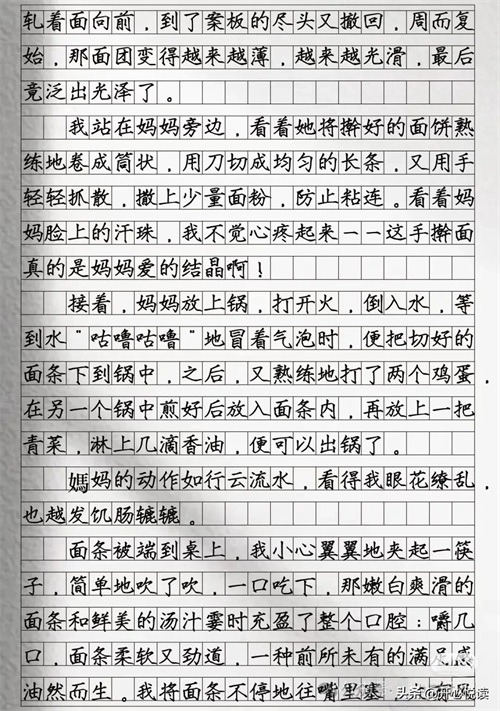 轧着面向前，到了案板的尽头又撤回，周而复
始，那面团变得越来越薄，越来越光滑，最后
竟泛出光泽了。
我站在妈妈旁边，看着她将擀好的面饼熟
练地卷成筒状，用刀切成均匀的长条，又用手
轻轻抓散，撒上少量面粉，防止粘连。看着妈
妈脸上的汗珠，我不觉心疼起来一一这手擀面
真的是妈妈爱的结晶啊！
接着，妈妈放上锅，打开火，倒入水，等
到水“咕噜咕噜”地冒着气泡时，便把切好的
面条下到锅中，之后，又熟练地打了两个鸡蛋，
在另一个锅中煎好后放入面条内，再放上一把
青菜，淋上几滴香油，便可以出锅了。
媽妈的动作如行云流水，看得我眼花缭乱，
也越发饥肠辘辘。
面条被端到桌上，我小心翼翼地夹起一筷
子，简单地吹了吹，一口吃下，那嫩白爽滑的
面条和鲜美的汤汁霎时充盈了整个口腔：嚼几
口，面条柔软又劲道，一种前所未有的满足感
油然而生。我将面条不停地往嘴里塞，
头条@开心悦读